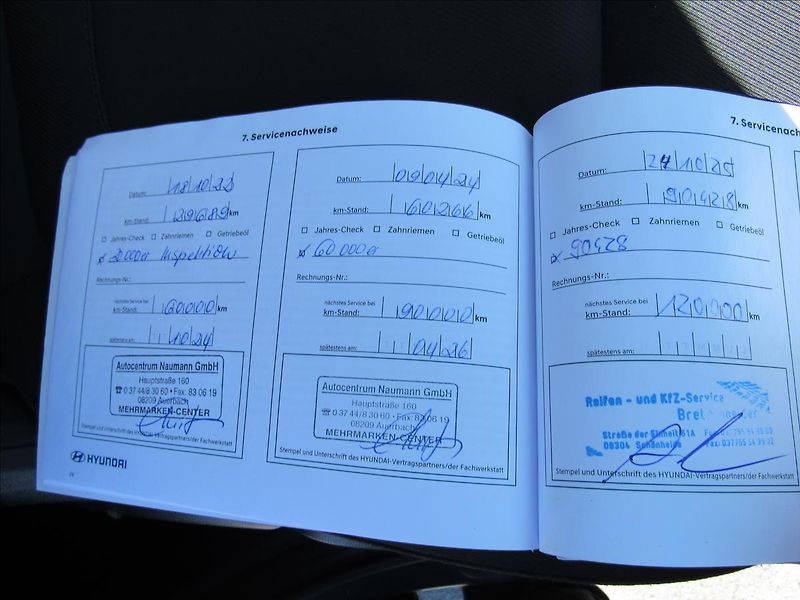 7. Servicenachweise
Datum: 18 10 22
km-Stand: 29689 km
Jahres-Check Zahnriemen Getriebeöl
Inspektion
Rechnungs-Nr.:
nächstes Service bei
km-Stand: 60000 km
spätestens am: 10 24
Autocentrum Naumann GmbH
Hauptstraße 160
☎ 0 37 44/8 30 60 • Fax: 83 06 19
08209 Auerbach
MEHRMARKEN-CENTER
Stempel und Unterschrift des HYUNDAI-Vertragspartners/der Fachwerkstatt
HYUNDAI
Datum: 09 04 24
km-Stand: 60266 km
Jahres-Check Zahnriemen Getriebeöl
60 000er
Rechnungs-Nr.:
nächstes Service bei
km-Stand: 90000 km
spätestens am: 04 26
Autocentrum Naumann GmbH
Hauptstraße 160
☎ 0 37 44/8 30 60 • Fax: 83 06 19
08209 Auerbach
MEHRMARKEN-CENTER
Stempel und Unterschrift des HYUNDAI-Vertragspartners/der Fachwerkstatt
7. Servicenach
Datum: 10 25
km-Stand: 90428 km
Jahres-Check Zahnriemen Getriebeöl
90428
Rechnungs-Nr.:
nächstes Service bei
km-Stand: 120000 km
spätestens am:
Reifen - und KfZ-Service
Straße der Einheit 61A
08304 Schönheide
Stempel und Unterschrift des HYUNDAI-Vertragspartners/der Fachwerkstatt